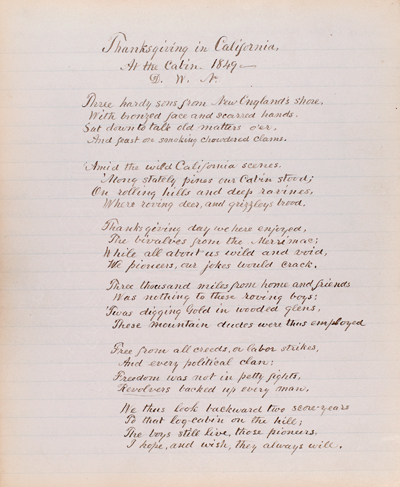 Thanksgiving in California,
At the Cabin 1849 —
D. W. N.
Three hardy sons from New England's shore,
With bronzed face and scarred hands,
Sat down to talk old matters o'er,
And feast on smoking chowdered clams.
'Amid the wild California scenes,
'Mong stately pines our Cabin stood;
On rolling hills and deep ravines,
Where roving deer, and grizzleys brood.
Thanksgiving day we here enjoyed,
The bivalves from the Merrimac;
While all about us wild and void,
We pioneers, our jokes would crack.
Three thousand miles from home and friends
Was nothing to these roving boys:
'Twas digging Gold in wooded glens,
These mountain dudes were thus employed
Free from all creeds, or labor strikes,
And every political clan;
Freedom was not in petty fights,
Revolvers backed up every man.
We thus look backward two score years
To that log-cabin on the hill;
The boys still live, those pioneers.
I hope, and wish, they always will.